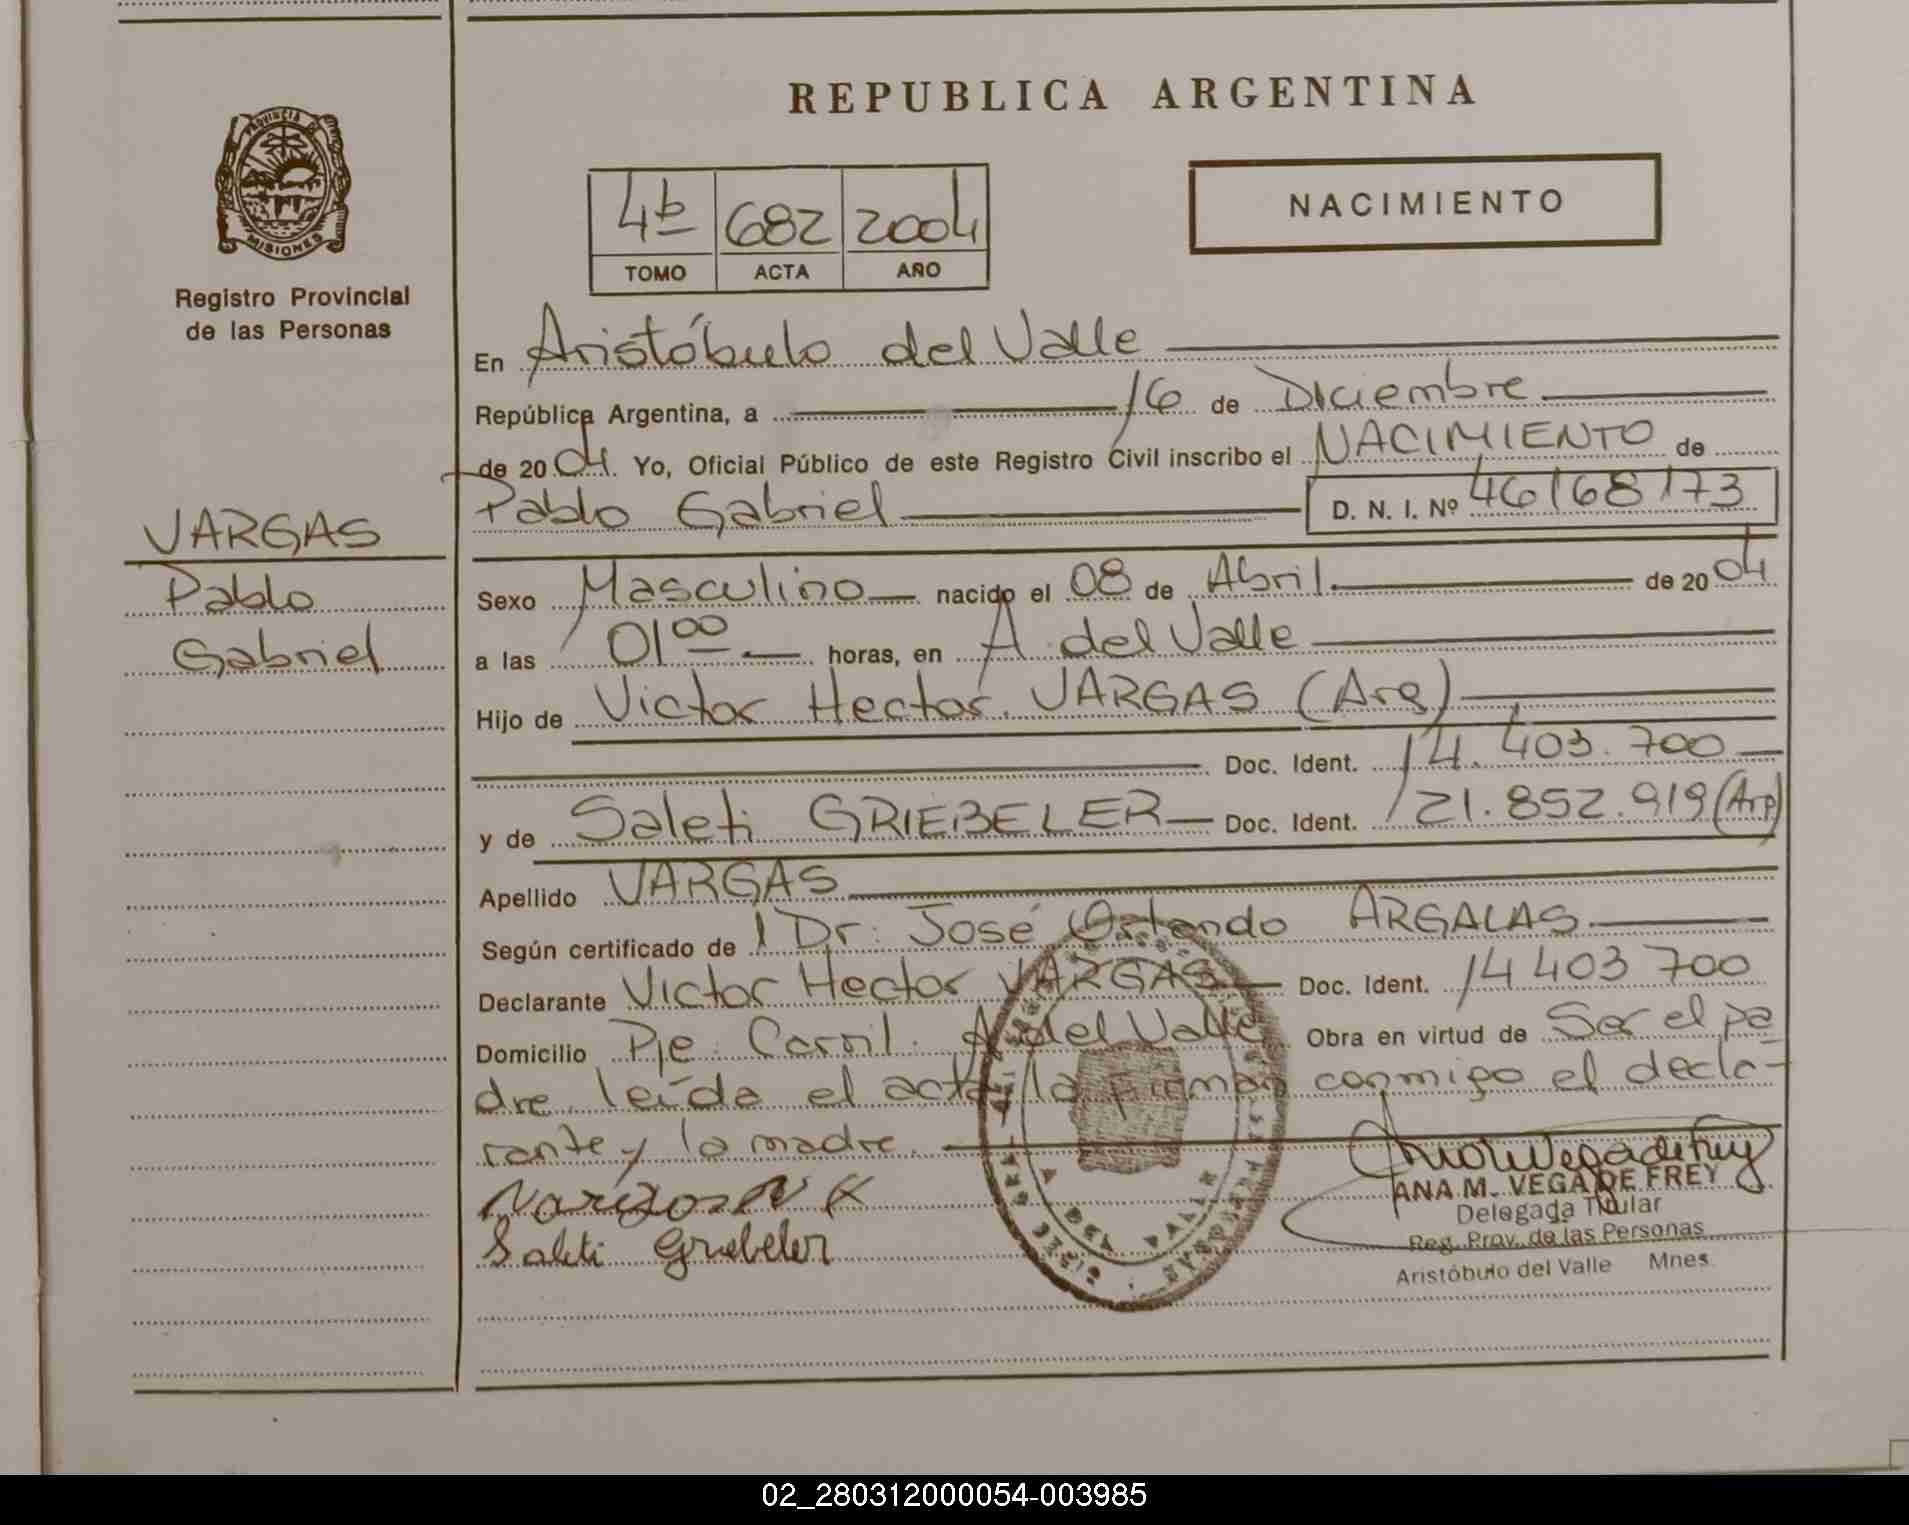 REPUBLICA ARGENTINA
PROVINCIA DE
MISIONES
Registro Provincial
de las Personas
4b 682 2004
TOMO ACTA AÑO
NACIMIENTO
En Aristóbulo del Valle
República Argentina, a 16 de Diciembre
de 2004. Yo, Oficial Público de este Registro Civil inscribo el NACIMIENTO de
Pablo Gabriel D. N. I. Nº 46168173
VARGAS
Pablo
Gabriel
Sexo Masculino nacido el 08 de Abril de 2004
a las 01 00 horas, en A. del Valle
Hijo de Victor Hector VARGAS (Arg)
Doc. Ident. 14.403.700
y de Saleti GRIEBELER Doc. Ident. 21.852.919 (Arg)
Apellido VARGAS
Según certificado de Dr. José Orlando ARGALAS
Declarante Victor Hector VARGAS Doc. Ident. 14 403 700
Domicilio Pje. Carril. A del Valle Obra en virtud de Ser el pa
dre leída el acta, la firman conmigo el decla-
rante y la madre.
Saleti Griebeler
ANA M. VEGA DE FREY
Delegada Titular
Reg. Prov. de las Personas
Aristóbulo del Valle Mnes.
02_280312000054-003985